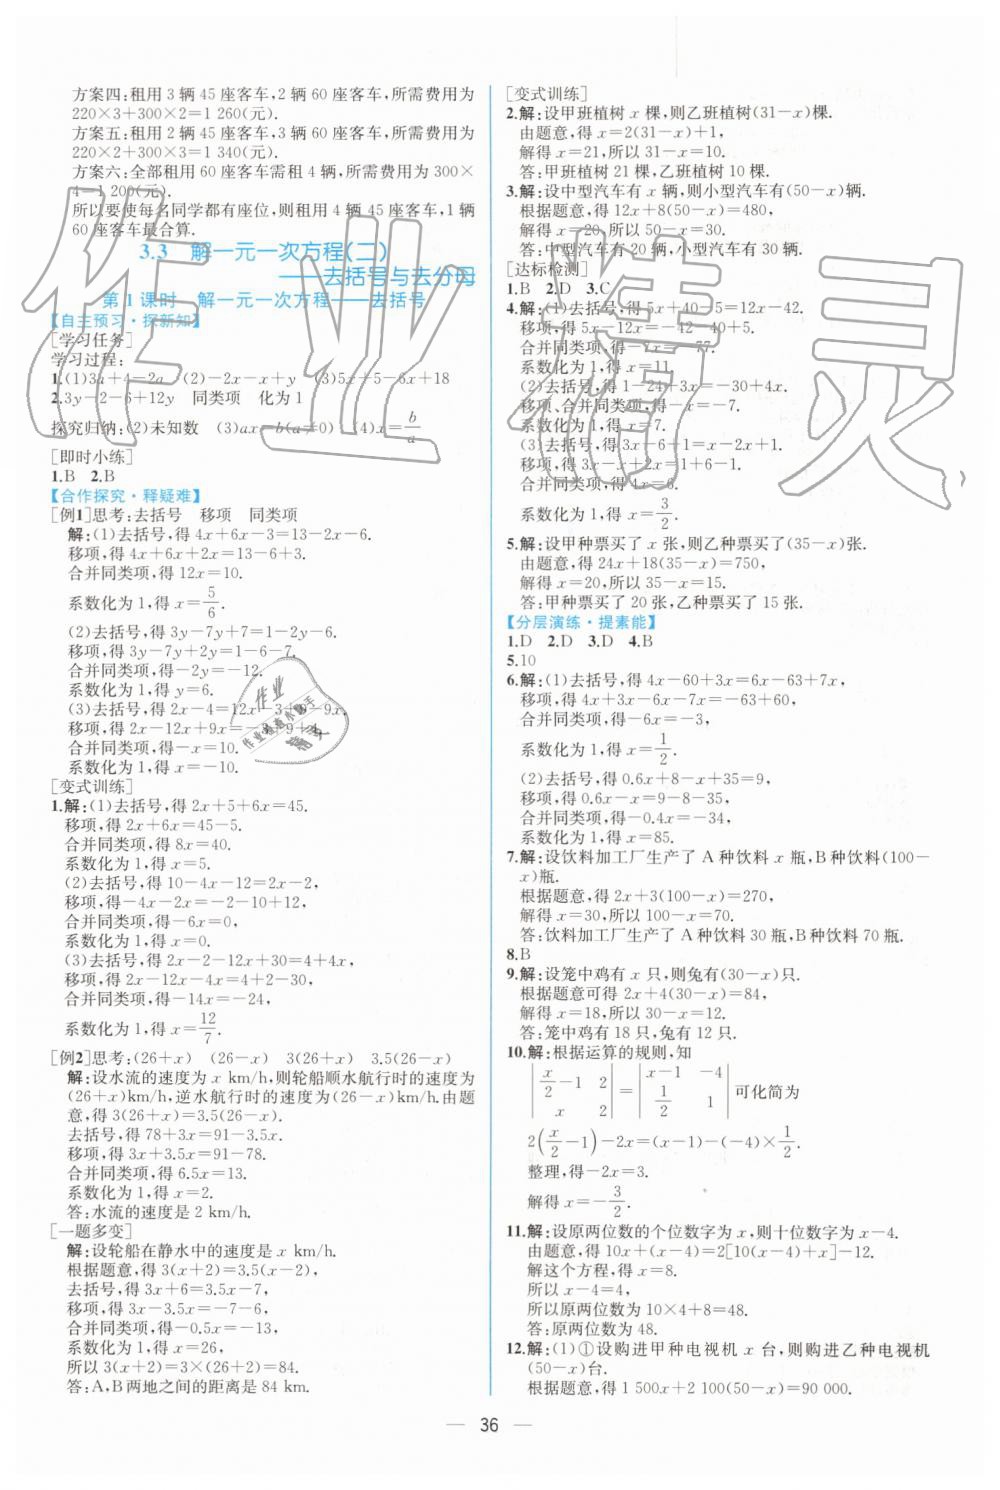 方案四:租用 3 辆 45 座客车,2 辆 60 座客车,所需费用为
220×3+300×2=1 260(元).
方案五:租用 2 辆 45 座客车,3 辆 60 座客车,所需费用为
220×2+300×3=1 340(元).
方案六:全部租用 60 座客车需租 4 辆,所需费用为 300×
4=1 200(元).
所以要使每名同学都有座位,则租用 4 辆 45 座客车,1 辆
60 座客车最合算.
3.3 解一元一次方程(二)
——去括号与去分母
第 1 课时 解一元一次方程——去括号
【自主预习·探新知】
[学习任务]
学习过程:
1.(1)3a+4-2a (2)-2x-x+y (3)5x+5-6x+18
2.3y-2-6+12y 同类项 化为 1
探究归纳:(2)未知数 (3)ax=b(a≠0) (4)x=b/a
[即时小练]
1.B 2.B
【合作探究·释疑难】
[例1]思考:去括号 移项 同类项
解:(1)去括号,得 4x+6x-3=13-2x-6.
移项,得 4x+6x+2x=13-6+3.
合并同类项,得 12x=10.
系数化为 1,得 x=5/6.
(2)去括号,得 3y-7y+7=1-2y-6.
移项,得 3y-7y+2y=1-6-7.
合并同类项,得-2y=-12.
系数化为 1,得 y=6.
(3)去括号,得 2x-4=12x-3+9-9x,
移项,得 2x-12x+9x=-3+9+4,
合并同类项,得-x=10.
系数化为 1,得 x=-10.
[变式训练]
1.解:(1)去括号,得 2x+5+6x=45.
移项,得 2x+6x=45-5.
合并同类项,得 8x=40.
系数化为 1,得 x=5.
(2)去括号,得 10-4x-12=2x-2,
移项,得-4x-2x=-2-10+12,
合并同类项,得-6x=0,
系数化为 1,得 x=0.
(3)去括号,得 2x-2-12x+30=4+4x,
移项,得 2x-12x-4x=4+2-30,
合并同类项,得-14x=-24,
系数化为 1,得 x=12/7.
[例2]思考:(26+x) (26-x) 3(26+x) 3.5(26-x)
解:设水流的速度为 x km/h,则轮船顺水航行时的速度为
(26+x)km/h,逆水航行时的速度为(26-x)km/h.由题
意,得 3(26+x)=3.5(26-x).
去括号,得 78+3x=91-3.5x.
移项,得 3x+3.5x=91-78.
合并同类项,得 6.5x=13.
系数化为 1,得 x=2.
答:水流的速度是 2 km/h.
[一题多变]
解:设轮船在静水中的速度是 x km/h.
根据题意,得 3(x+2)=3.5(x-2),
去括号,得 3x+6=3.5x-7,
移项,得 3x-3.5x=-7-6,
合并同类项,得-0.5x=-13,
系数化为 1,得 x=26,
所以 3(x+2)=3×(26+2)=84.
答:A,B两地之间的距离是 84 km.
[变式训练]
2.解:设甲班植树 x 棵,则乙班植树(31-x)棵.
由题意,得 x=2(31-x)+1,
解得 x=21,所以 31-x=10.
答:甲班植树 21 棵,乙班植树 10 棵.
3.解:设中型汽车有 x 辆,则小型汽车有(50-x)辆.
根据题意,得 12x+8(50-x)=480,
解得 x=20,所以 50-x=30.
答:中型汽车有 20 辆,小型汽车有 30 辆.
[达标检测]
1.B 2.D 3.C
4.解:(1)去括号,得 5x+40-5=12x-42.
移项,得 5x-12x=-42-40+5.
合并同类项,得-7x=-77.
系数化为 1,得 x=11.
(2)去括号,得 1-24+3x=-30+4x.
移项、合并同类项,得-x=-7.
系数化为 1,得 x=7.
(3)去括号,得 3x-6+1=x-1.
移项,得 3x-x=-1+6-1.
合并同类项,得 4x=6.
系数化为 1,得 x=3/2.
5.解:设甲种票买了 x 张,则乙种票买了(35-x)张.
由题意,得 24x+18(35-x)=750,
解得 x=20,所以 35-x=15.
答:甲种票买了 20 张,乙种票买了 15 张.
【分层演练·提素能】
1.D 2.D 3.D 4.B
5.10
6.解:(1)去括号,得 4x-60+3x=6x-63+7x,
移项,得 4x+3x-6x-7x=-63+60,
合并同类项,得-6x=-3,
系数化为 1,得 x=1/2.
(2)去括号,得 0.6x+8-x+35=9,
移项,得 0.6x-x=9-8-35,
合并同类项,得-0.4x=-34,
系数化为 1,得 x=85.
7.解:设饮料加工厂生产了 A 种饮料 x 瓶,B种饮料(100-
x)瓶.
根据题意,得 2x+3(100-x)=270,
解得 x=30,所以 100-x=70.
答:饮料加工厂生产了 A 种饮料 30 瓶,B种饮料 70 瓶.
8.B
9.解:设笼中鸡有 x 只,则兔有(30-x)只.
根据题意可得 2x+4(30-x)=84,
解得 x=18,所以 30-x=12.
答:笼中鸡有 18 只,兔有 12 只.
10.解:根据运算的规则,知
|x/2-1 2; x 2|=|x-1 -4; 1/2 1| 可化简为
2(x/2-1)-2x=(x-1)-(-4)×1/2.
整理,得-2x=3.
解得 x=-3/2.
11.解:设原两位数的个位数字为 x,则十位数字为 x-4.
由题意,得 10x+(x-4)=2[10(x-4)+x]-12.
解这个方程,得 x=8.
所以 x-4=4,
所以原两位数为 10×4+8=48.
答:原两位数为 48.
12.解:(1)①设购进甲种电视机 x 台,则购进乙种电视机
(50-x)台.
根据题意,得 1 500x+2 100(50-x)=90 000.
— 36 —
作业精灵